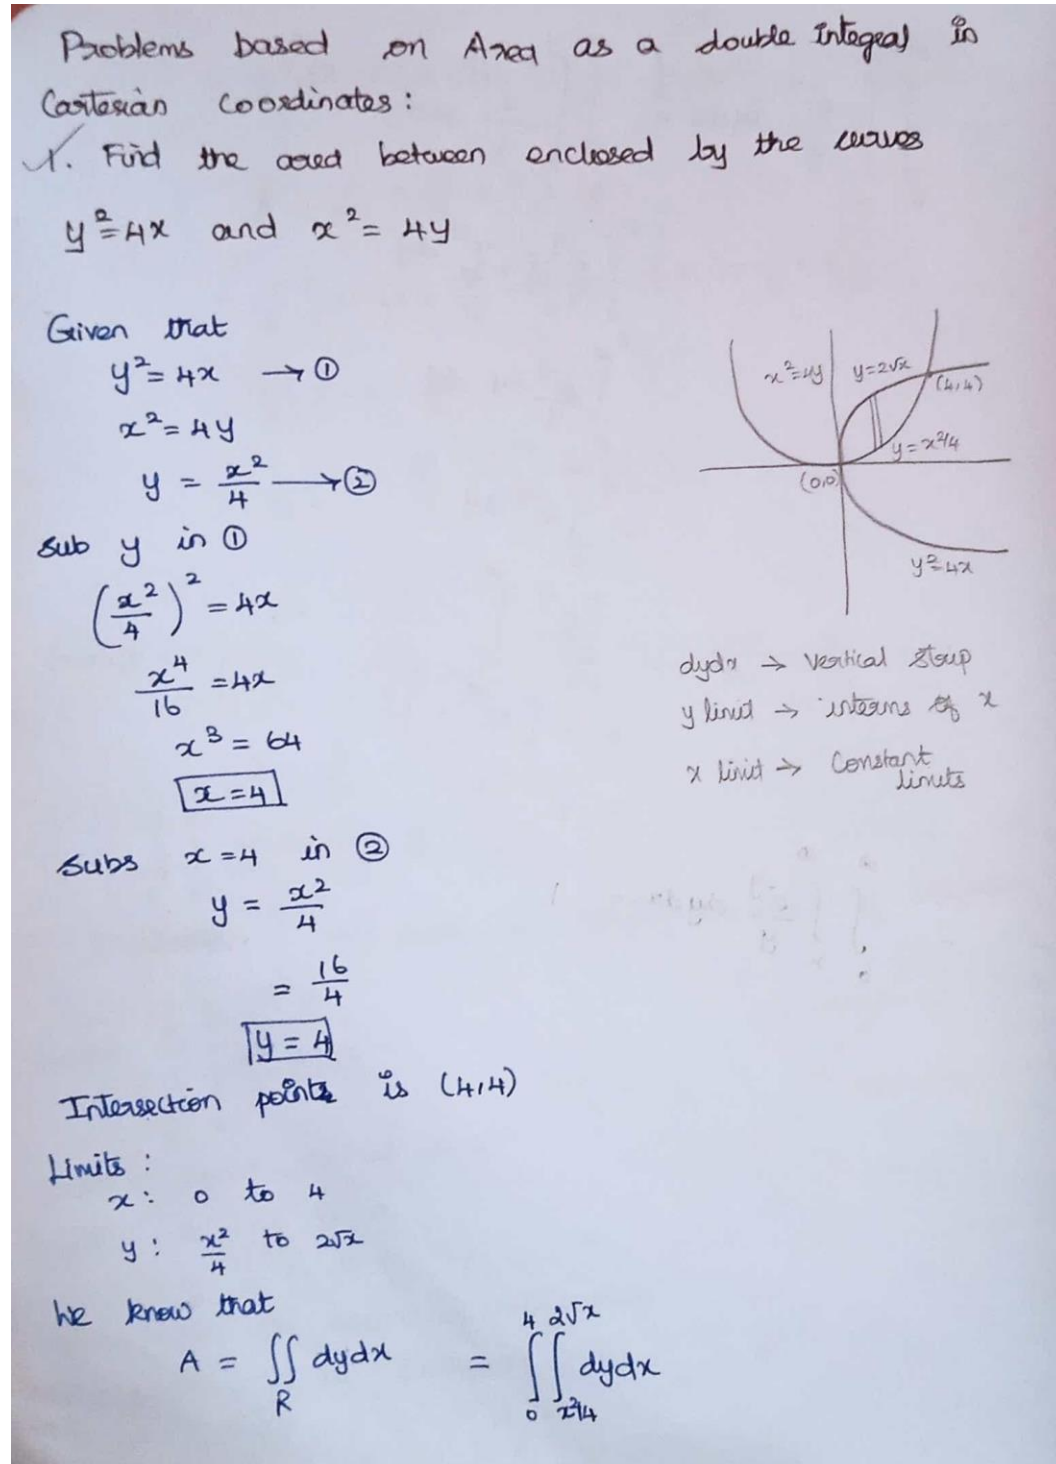 Problems based on Area as a double Integral in
Cartesian Coordinates:
1. Find the area between enclosed by the curves
y²=4x and x²= 4y
Given that
y²= 4x → ①
x²= 4y
y = x²/4 → ②
Sub y in ①
(x²/4)² = 4x
x⁴/16 = 4x
x³ = 64
x = 4
Subs x = 4 in ②
y = x²/4
= 16/4
y = 4
Intersection points is (4,4)
Limits :
x : 0 to 4
y : x²/4 to 2√x
We know that
A = ∬_R dydx = ∫₀⁴ ∫_{x²/4}^{2√x} dydx
x²=4y
y=2√x
(4,4)
y = x²/4
(0,0)
y²=4x
dydx → Vertical Strip
y limit → interms of x
x limit → Constant
limits